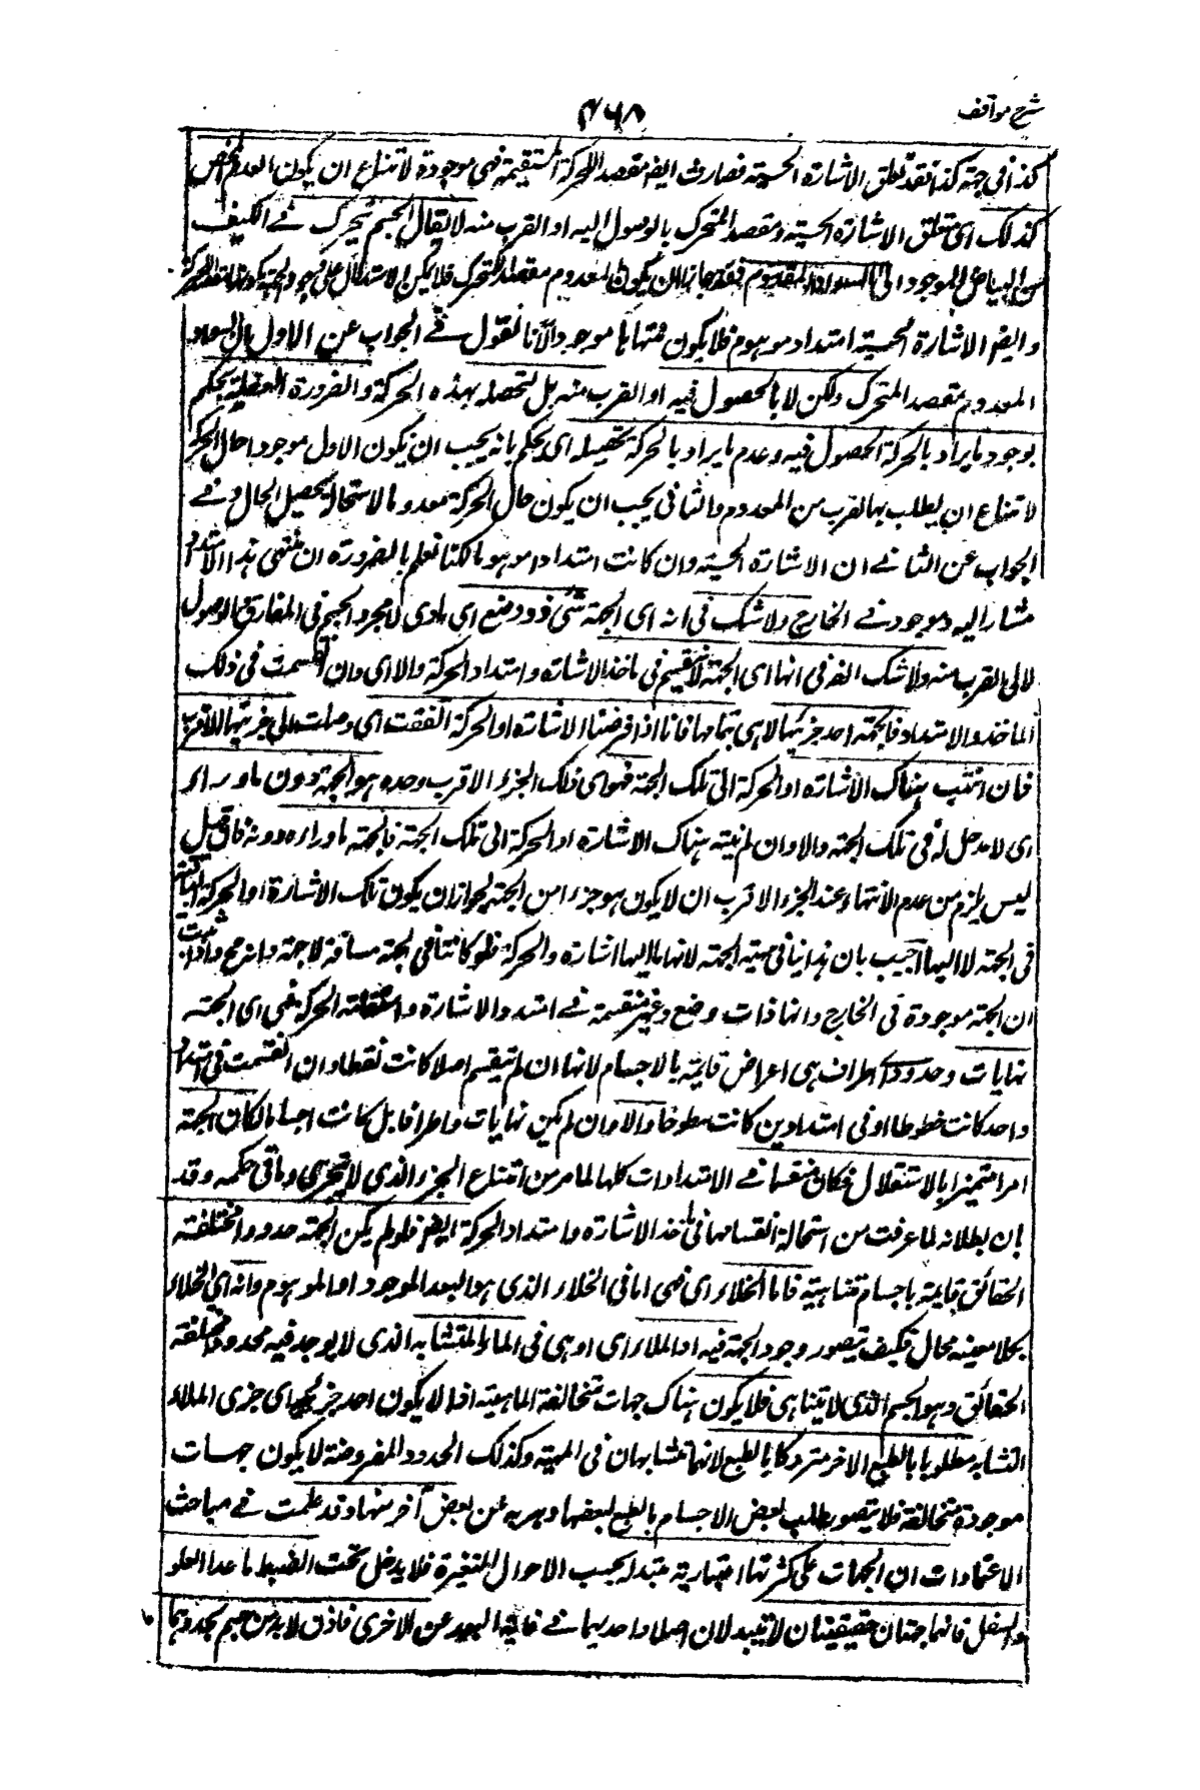 شرح مواقف
۴۶۸
كذا فى جهة كذا فقد تعلق الاشارة الحسية فصارت ايضا مقصد اللحركة المستقيمة فهى موجودة لامتناع ان يكون العدم المحض
كذلك اى متعلق الاشارة الحسية ومقصد المتحرك بالوصول اليه او القرب منه لا يقال الجسم يتحرك فے الكيف
من البياض الموجود الى السواد المعدوم فقد جاز ان يكون المعدوم مقصد المتحرك فلا يمكن الاستدلال على وجود الجهة بكونها مقصد المتحرك
وايضا الاشارة الحسية امتداد موهوم فلا يكون منتهاها موجودا لانا نقول فے الجواب عن الاول بان السواد
المعدوم مقصد المتحرك ولكن لا بالحصول فيه او القرب منه بل لتحصله بهذه الحركة والضرورة العقلية يحكم
بوجود ما يراد بالحركة الحصول فيه وعدم ما يراد بالحركة تحصيله اى يحكم بانه يجب ان يكون الاول موجودا حال الحركة
لامتناع ان يطلب بها القرب من المعدوم والثانى يجب ان يكون حال الحركة معدوما لاستحالة تحصيل الحاصل وفے
الجواب عن الثانے ان الاشارة الحسية وان كانت امتدادا موهوما لكنا نعلم بالضرورة ان منتهى هذا الامتداد
مشار اليه وموجود فے الخارج ولا شك فى انه اى الجهة شئ ذو وضع اى مادى لا مجرد الجسم فى المفارق الوصول
لا الى القرب منه ولا شك ايضا فى انها اى الجهة لا تنقسم فى ماخذ الاشارة وامتداد الحركة والا اى وان انقسمت فى ذلك
الماخذ والامتداد فالجهة احد جزئيها لا هى بتمامها فانا اذا فرضنا الاشارة او الحركة انفقت اى وصلت الى جزئها الاقرب
فان انتهت هناك الاشارة او الحركة الى تلك الجهة فهو اى ذلك الجزء الاقرب وحده هو الجهة دون ما وراءه
اى لا مدخل له فى تلك الجهة والا وان لم ينته هناك الاشارة او الحركة الى تلك الجهة فالجهة ما وراءه دونه فان قيل
ليس يلزم من عدم الانتهاء عند الجزء الاقرب ان لا يكون هو جزءا من الجهة لجواز ان يكون تلك الاشارة او الحركة
فى الجهة لا اليها اجيب بان هذا ينافى مهية الجهة لانها ما اليها اشارة والحركة فلو كانتا فى الجهة مسافة لا جهة وانه محال واذا ثبت
ان الجهة موجودة فى الخارج وانها ذات وضع وغير منقسمة فے امتداد الاشارة واستقامة الحركة فهى اى الجهة
نهايات وحدود اى اطراف هى اعراض قايمة بالاجسام لانها ان لم ينقسم اصلا كانت نقطا وان انقسمت فى امتداد
واحد كانت خطوطا او فى امتدادين كانت سطوحا والا وان لم يكن نهايات واطرافا بل كانت اجساما لكان الجهة
امرا متحيزا بالاستقلال فكان منقسما فے الامتدادات كلها لما مر من امتناع الجزء الذى لا يتجزى وما فى حكمه وقد
بان بطلانه لما عرفت من استحالة انقسامها فى ماخذ الاشارة وامتداد الحركة ايضا فلو لم يكن الجهة حدودا مختلفة
الحقائق قايمة باجسام متناهية فاما الخلاء اى فهى اما فى الخلاء الذى هو البعد الموجود او الموهوم وانه اى الخلاء
بكلا معنييه محال فكيف يتصور وجود الجهة فيه او الملاء اى او هى فى الملاء المتشابه الذى لا يوجد فيه حدود مختلفة
الحقائق وهو الجسم الذى لا يتناهى فلا يكون هناك جهات متخالفة الماهية اذ لا يكون احد جزئيه اى جزئى الملاء
المتشابه مطلوبا بالطبع والاخر متروكا بالطبع لانهما متشابهان فى المهية وكذلك الحدود المفروضة لا يكون جهات
موجودة متخالفة فلا يتصور طلب بعض الاجسام بالطبع لبعضها وهربه عن بعض آخر منها وقد علمت فے مباحث
الاعتمادات ان الجهات على كثرتها اعتبارية متبدلة بحسب الاحوال المتغيرة فلا يدخل تحت الضبط ما عدا العلو
والسفل فانهما جهتان حقيقيتان لا تتبدلان اصلا واحديهما فے غاية البعد عن الاخرى فاذن لا بد من جسم يحددهما